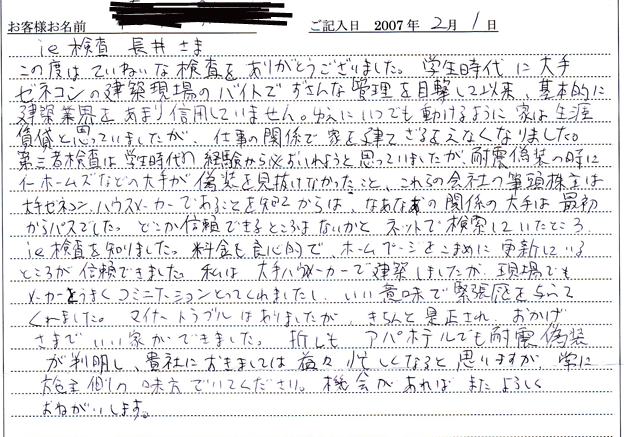 お客様お名前 ご記入日 2007年2月1日
ie検査 長井さま
この度はていねいな検査をありがとうございました。学生時代に大手
ゼネコンの建築現場のバイトでずさんな管理を目撃して以来、基本的に
建築業界をあまり信用していません。ゆえにいつでも動けるように家は生涯
賃貸と思っていましたが、仕事の関係で家を建てざるをえなくなりました。
第三者検査は学生時代の経験から必ずいれようと思っていましたが、耐震偽装の時に
イーホームズなどの大手が偽装を見抜けなかったこと、これらの会社の筆頭株主は
大手ゼネコン、ハウスメーカーであることを知ってからは、なあなあの関係の大手は最初
からパスでした。どこか信頼できるところはないかとネットで検索していたところ、
ie検査を知りました。料金も良心的で、ホームページをこまめに更新している
ところが信頼できました。私は大手ハウスメーカーで建築しましたが、現場でも
メーカーとうまくコミニケーションとってくれましたし、いい意味で緊張感を与えて
くれました。マイナートラブルはありましたが、きちんと是正され、おかげ
さまでいい家ができました。折しも アパホテルでも耐震偽装
が判明し、貴社におきましては益々忙しくなると思いますが、常に
施主側の味方でいてください。機会があればまたよろしく
おねがいします。